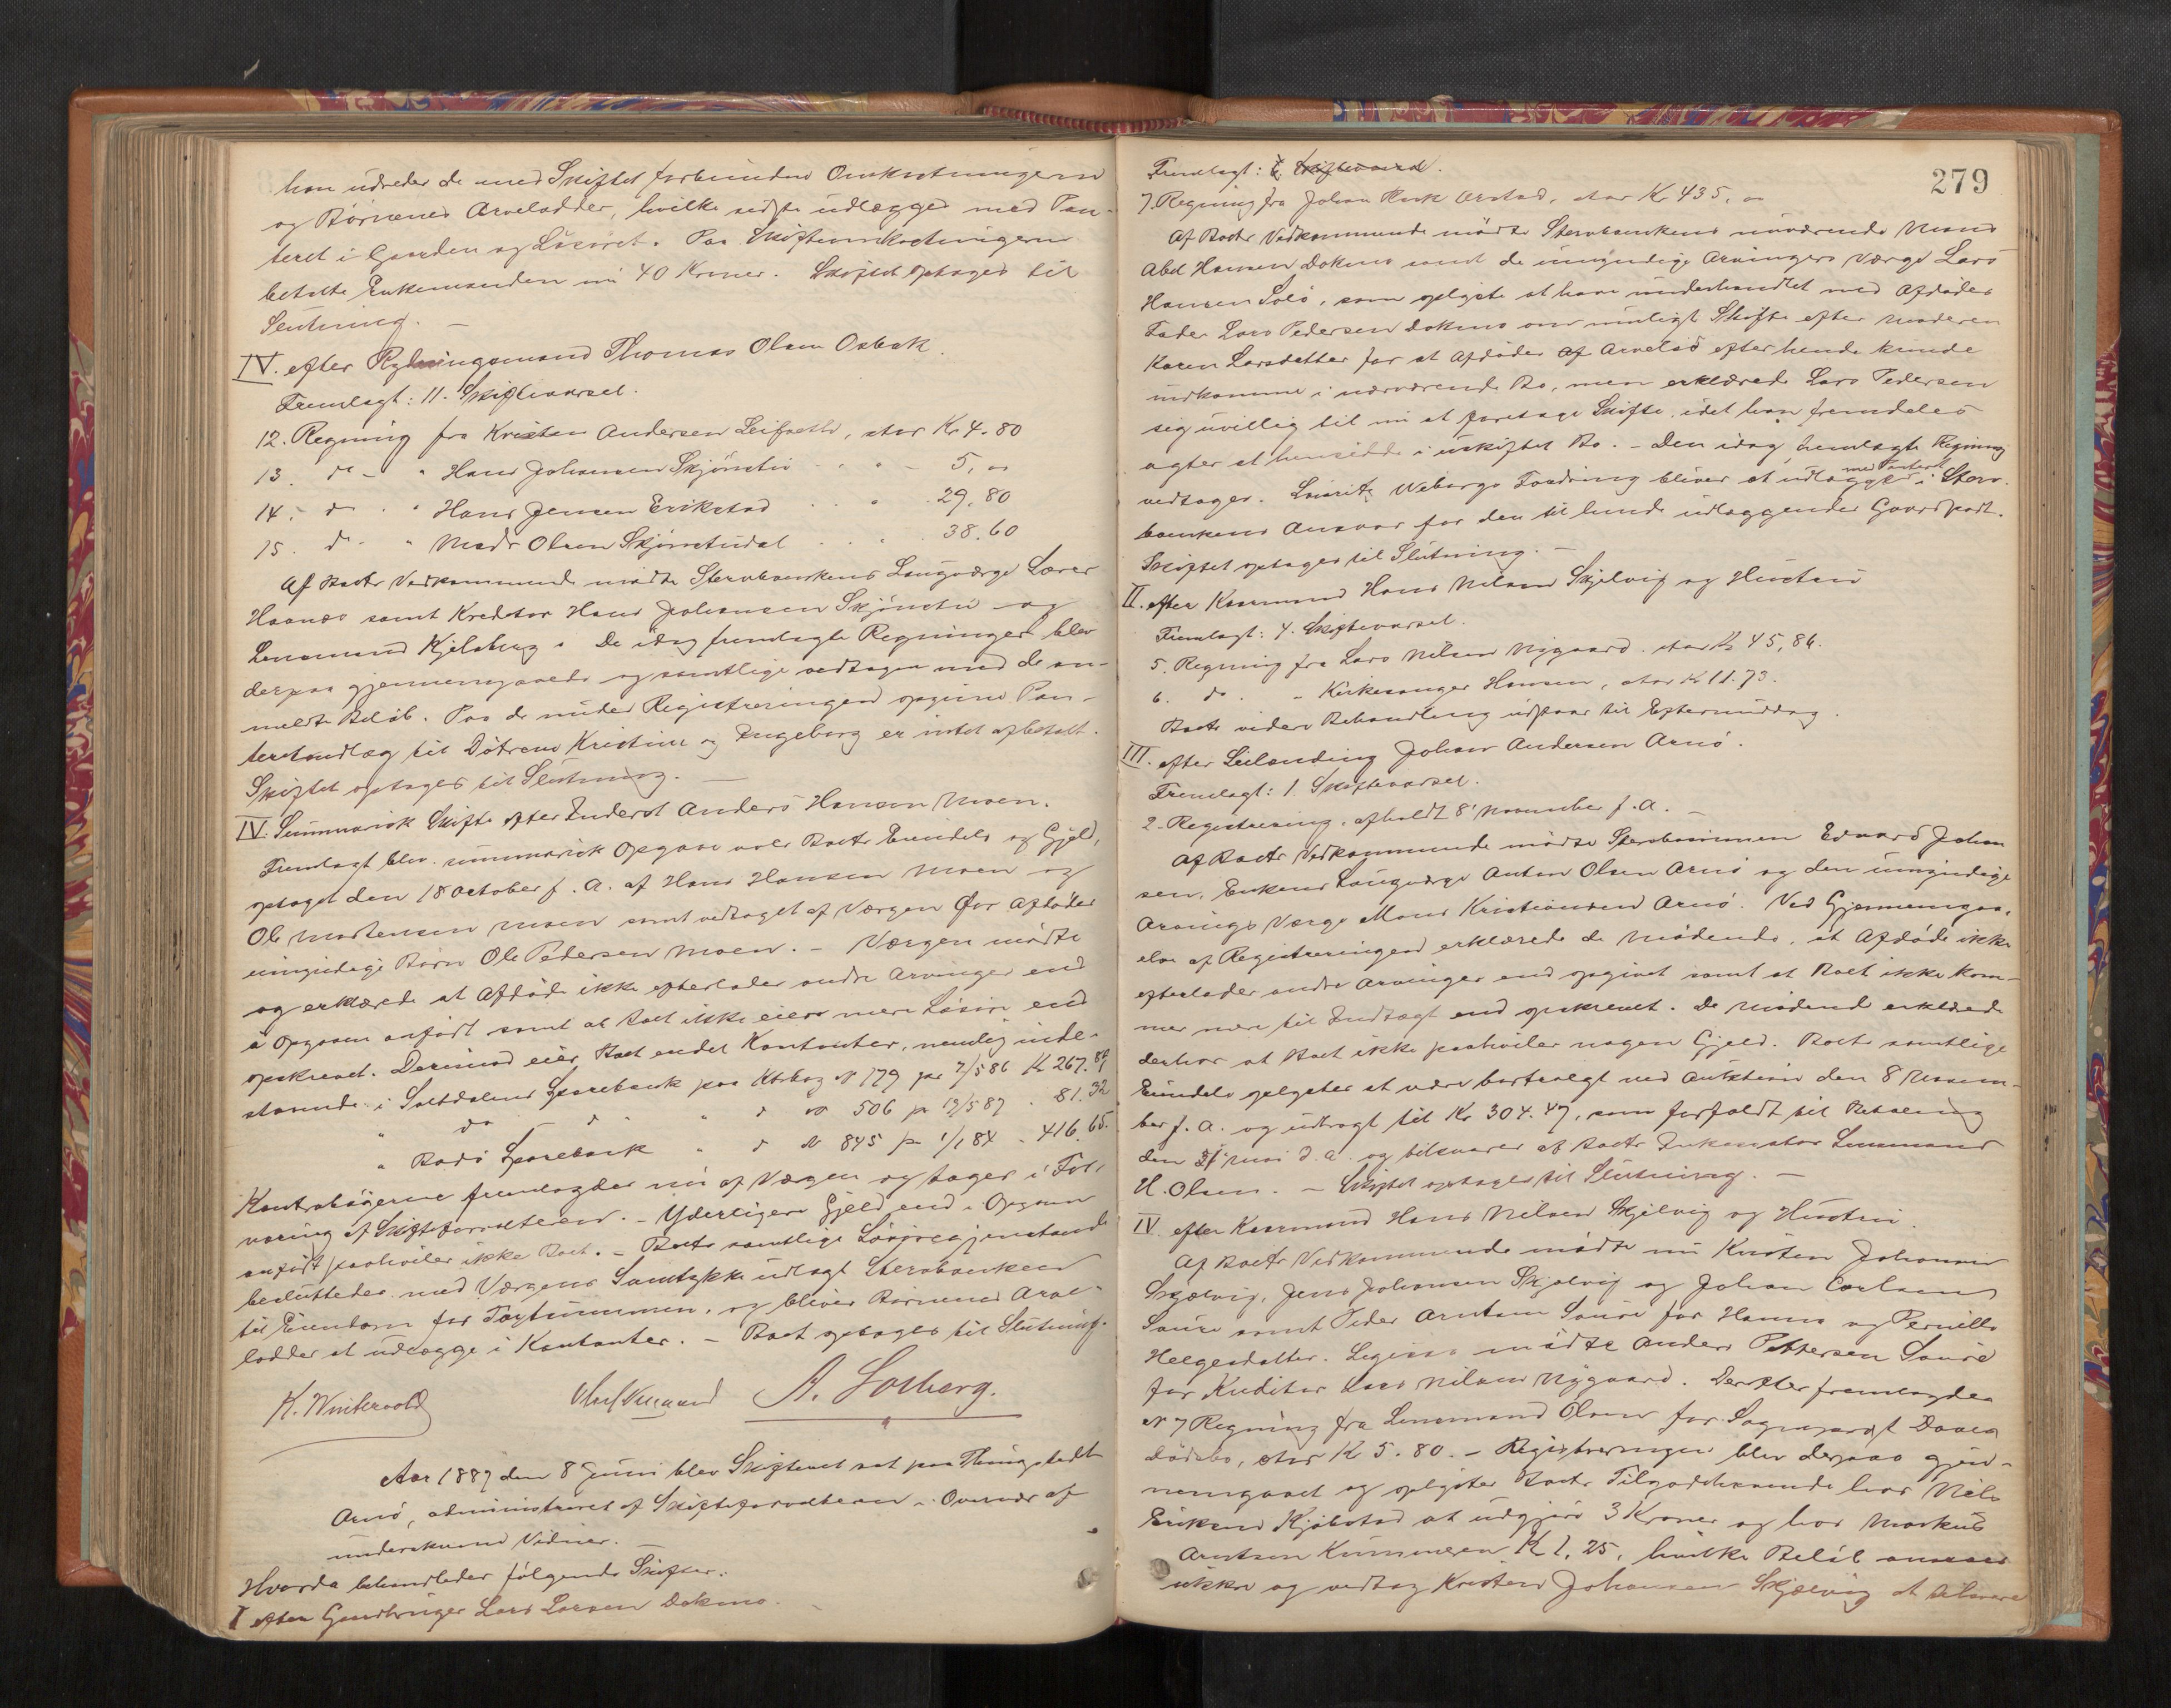 han udreder de med Skiftet forbundne Omkostninger
og Børnenes Arvelodder, hvilke sidste udlægges med Pan-
teret i Gaarden og Løsøret. Paa Skifteomkostningerne
betalte Enkemanden nu 40 Kroner. Skiftet optages til
Slutning. —
IV. efter Rydningsmand Thomas Olsen Osbak.
Fremlagt: 11. Skiftevarsel.
12. Regning fra Kristen Andersen Leifseth, stor Kr 4.80
13. do - " Hans Johansen Skjönstu - " - 5,00
14. do " Hans Jensen Erikstad " 29,80
15. do " Mads Olsen Skjönstudal " 38.60
Af Boets Vedkommende mødte Stervboenkens Laugværge Lærer
Haanæs samt Kreditor Hans Johansen Skjönstu og
Lensmand Kjelsberg. De idag fremlagte Regninger blev
derpaa gjennemgaaede og samtlige vedtagen med de an-
meldte Beløb. Paa de under Registreringen opgivne Pan-
teretsudlæg til Døtrene Kristine og Ingeborg er intet afbetalt.
Skiftet optages til Slutning. —
IV. Summarisk Skifte efter Inderst Anders Hansen Moen.
Fremlagt blev summarisk Opgave over Boets Eiendele og Gjeld,
optaget den 18 October f. A. af Hans Hansen Moen og
Ole Mortensen Moen samt vedtaget af Værgen for Afdødes
umyndige Børn Ole Pedersen Moen. — Værgen mødte
og erklærede at Afdøde ikke efterlader andre Arvinger end
i Opgaven anført samt at Boet ikke eier mere Løsøre end
opskrevet. Derimod eier Boet endel Kontanter, nemlig inde-
staaende i Saltdalens Sparebank paa Ktrbog N 179 pr 7/5 86 Kr 267.89
" do d " d No 506 pr 19/5 87 " 81.32
" Bodø Sparebank " d N 845 pr 1/1 84 " 416.65.
Kontrabøgerne fremlagdes nu af Værgen og tages i For-
varing af Skifteforvalteren. — Yderligere Gjeld end i Opgaven
anført paahviler ikke Boet. — Boets samtlige Løsøregjenstande
besluttedes med Værgens Samtykke udlagt Stervboenken
til Eiendom for Taxtsummen, og bliver Børnenes Arve-
lodder at udlægge i Kontanter. — Boet optages til Slutning.
K. Winterwold A. Solberg.
Aar 1887 den 8 Juni blev Skifteret sat paa Thingstedet
Arnø, administreret af Skifteforvalteren i Overvær af
underskrevne Vidner. —
Hvorda behandledes følgende Skifter:
I efter Gaardbruger Lars Larsen Dokmo.
279
Fremlagt: 6. Skiftevarsel.
7. Regning fra Johan Arstad, stor Kr 435,00
Af Boets Vedkommende mødte Stervboenkens nuværende Mand
Abel Hansen Dokmo samt de umyndige Arvingers Værge Lars
Hansen Solø, som oplyste at have underhandlet med Afdødes
Fader Lars Pedersen Dokmo om muligt Skifte efter Moderen
Karen Larsdatter for at Afdødes Arvelod efter hende kunde
indkomme i nærværende Bo, men erklærede Lars Pedersen
sig uvillig til nu at foretage Skifte, idet han fremdeles
agter at hensidde i uskiftet Bo. — Den idag fremlagte Regning
vedtages. Lauritz Weborgs Fordring bliver at udlægge med Panteret i Sterv-
boenkens Ansvar for den til hende udlæggendes Gaardpart.
Skiftet optages til Slutning. —
II. efter Kaarmand Hans Nilsen Skjelvig og Hustru
Fremlagt: 4. Skiftevarsel.
5. Regning fra Lars Nilsen Nygaard. stor Kr 45,86.
6. do. - Kirkesanger Hansen, stor Kr 11.73.
Boets videre Behandling udstaar til Eftermiddag.
III. efter Leilending Johan Andersen Arnø.
Fremlagt: 1. Skiftevarsel.
2. Registrering, afholdt 8' November f. A. —
Af Boets Vedkommende mødte Stervbosønnen Edvard Johan
sen, Enkens Laugværge Anton Olsen Arnø og den umyndige
Arvings Værge Mons Kristiansen Arnø. Ved Gjennemgaa-
else af Registreringen erklærede de Mødende, at Afdøde ikke
efterlader andre Arvinger end opgivet samt at Boet ikke kom-
mer mere til Indtægt end opskrevet. De Mødende erklærede
derhos at Boet ikke paahviler nogen Gjeld. Boets samtlige
Eiendele oplystes at være bortsolgt ved Auktion den 8 Novem-
ber f. A. og udbragt til Kr 304.47, som forfaldt til Betaling
den 31 Mai d. A. og tilsvares af Boets Inkassator Lensmand
H. Olsen. — Skiftet optages til Slutning. —
IV efter Kaarmand Hans Nilsen Skjelvig og Hustru.
Af Boets Vedkommende mødte nu Kristen Johansen
Skjelvig, Jens Johansen Skjelvig og Johan Carlsen
Saure samt Peder Arntsen Saure for Hanna og Pernille
Helgesdatter. Ligesaa mødte Anders Pettersen Saure
for Kreditor Lars Nilsen Nygaard. Derefter fremlagdes
N 7 Regning fra Lensmand Olsen for
dødsbo, stor Kr 5.80. — Registreringen blev derpaa gjen-
nemgaaet og oplystes Boets Tilgodehavende hos Nils
Eriksen Kjelstad at udgjøre 3 Kroner og hos Markus
Arntsen Kr 1,25, hvilke Beløb ansees
sikkre og vedtog Kristen Johansen Skjælvig at tilsvare